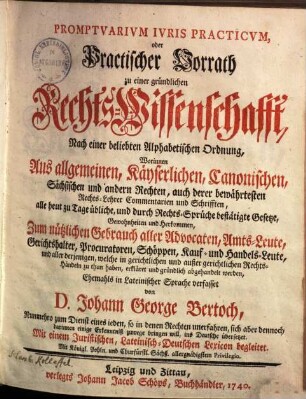 PROMPTVARIVM IVRIS PRACTICVM,
oder
Practischer Vorrath
zu einer gründlichen
Rechts-Wissenschafft,
Nach einer beliebten Alphabetischen Ordnung,
Worinnen
Aus allgemeinen, Käyserlichen, Canonischen,
Sächsischen und andern Rechten, auch derer bewährtesten
Rechts-Lehrer Commentarien und Schrifften,
alle heut zu Tage übliche, und durch Rechts-Sprüche bestätigte Gesetze,
Gewohnheiten und Herkommen,
Zum nützlichen Gebrauch aller Advocaten, Amts-Leute,
Gerichtshalter, Procuratoren, Schöppen, Kauf- und Handels-Leute,
und aller derjenigen, welche in gerichtlichen und ausser gerichtlichen Rechts-
Händeln zu thun haben, erkläret und gründlich abgehandelt werden,
Ehemahls in Lateinischer Sprache verfasset
von
D. Johann George Bertoch,
Nunmehro zum Dienst eines ieden, so in denen Rechten unerfahren, sich aber dennoch
darinnen einige Erkenntniß zuwege bringen will, ins Deutsche übersetzet.
Mit einem Juristischen, Lateinisch-Deutschen Lexicon begleitet.
Mit Königl. Pohln. und Churfürstl. Sächs. allergnädigstem Privilegio.
Leipzig und Zittau,
verlegts Johann Jacob Schöps, Buchhändler, 1740.